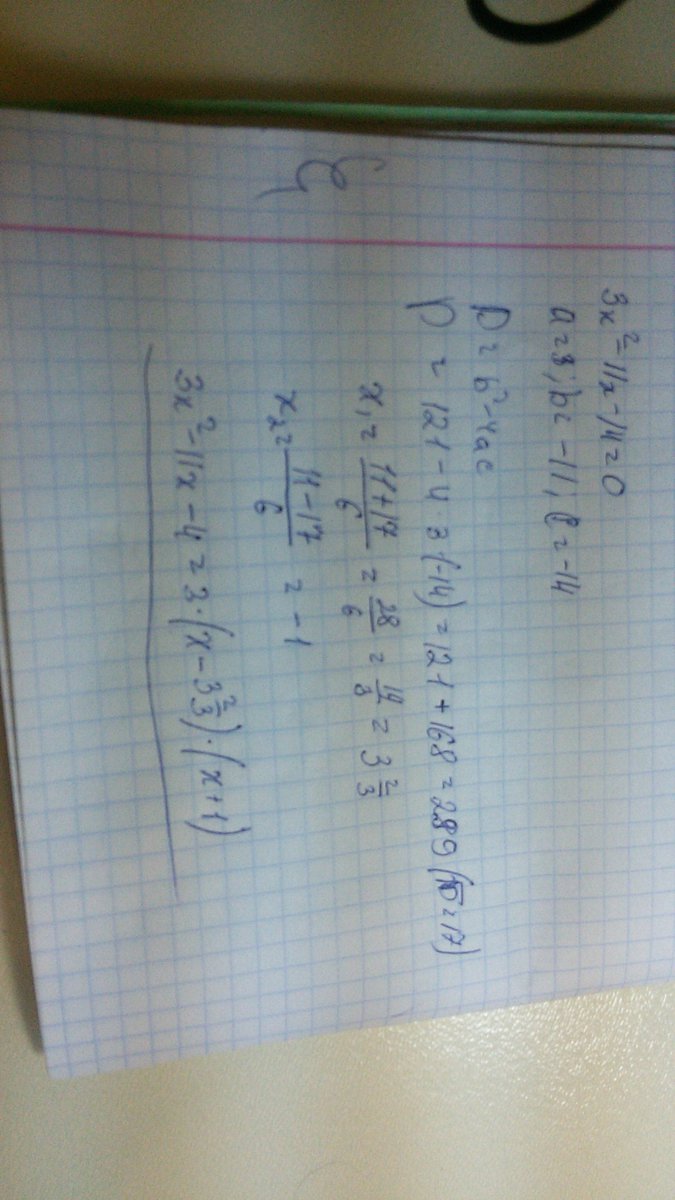 3x²-11x-14=0
a=3; b=-11; c=-14
D=b²-4ac
D = 121-4·3·(-14)=121+168=289 (√D=17)
x₁= 11+17/6 = 28/6 = 14/3 = 3 2/3
x₂= 11-17/6 = -1
3x²-11x-4=3·(x-3 2/3)·(x+1)